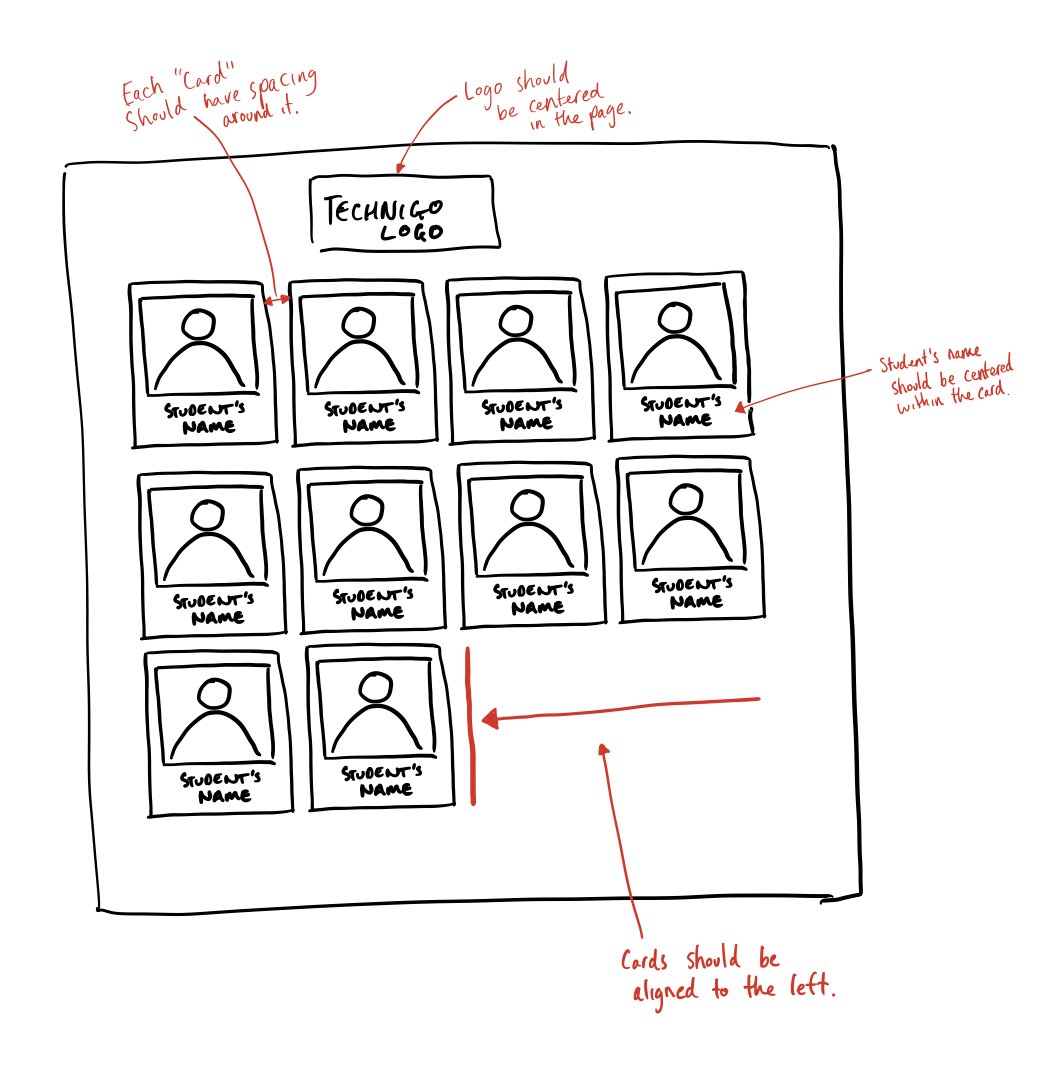 Each "Card"
Should have spacing
around it.
Logo should
be centered
in the page.
TECHNIGO
LOGO
STUDENT'S
NAME
STUDENT'S
NAME
STUDENT'S
NAME
STUDENT'S
NAME
Student's name
should be centered
within the card.
STUDENT'S
NAME
STUDENT'S
NAME
STUDENT'S
NAME
STUDENT'S
NAME
STUDENT'S
NAME
STUDENT'S
NAME
Cards should be
aligned to the left.